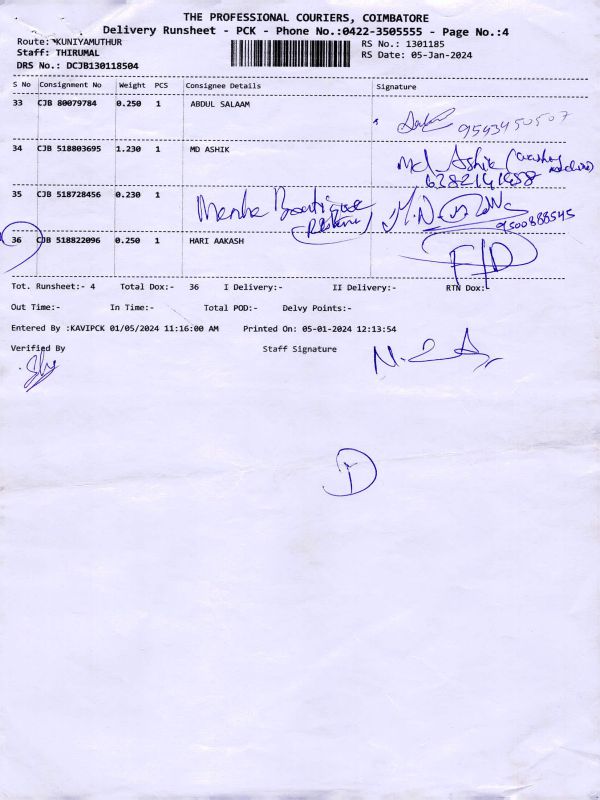 THE PROFESSIONAL COURIERS, COIMBATORE
Delivery Runsheet - PCK - Phone No.:0422-3505555 - Page No.:4
Route: KUNIYAMUTHUR
RS No.: 1301185
Staff: THIRUMAL
RS Date: 05-Jan-2024
DRS No.: DCJB130118504
S No Consignment No Weight PCS Consignee Details Signature
33 CJB 80079784 0.250 1 ABDUL SALAAM
9543450507
34 CJB 518803695 1.230 1 MD ASHIK
Md Ashik
35 CJB 518728456 0.230 1
9500888545
36 CJB 518822096 0.250 1 HARI AAKASH
F/D
Tot. Runsheet:- 4 Total Dox:- 36 I Delivery:- II Delivery:- RTN Dox:-
Out Time:- In Time:- Total POD:- Delvy Points:-
Entered By :KAVIPCK 01/05/2024 11:16:00 AM Printed On: 05-01-2024 12:13:54
Verified By Staff Signature